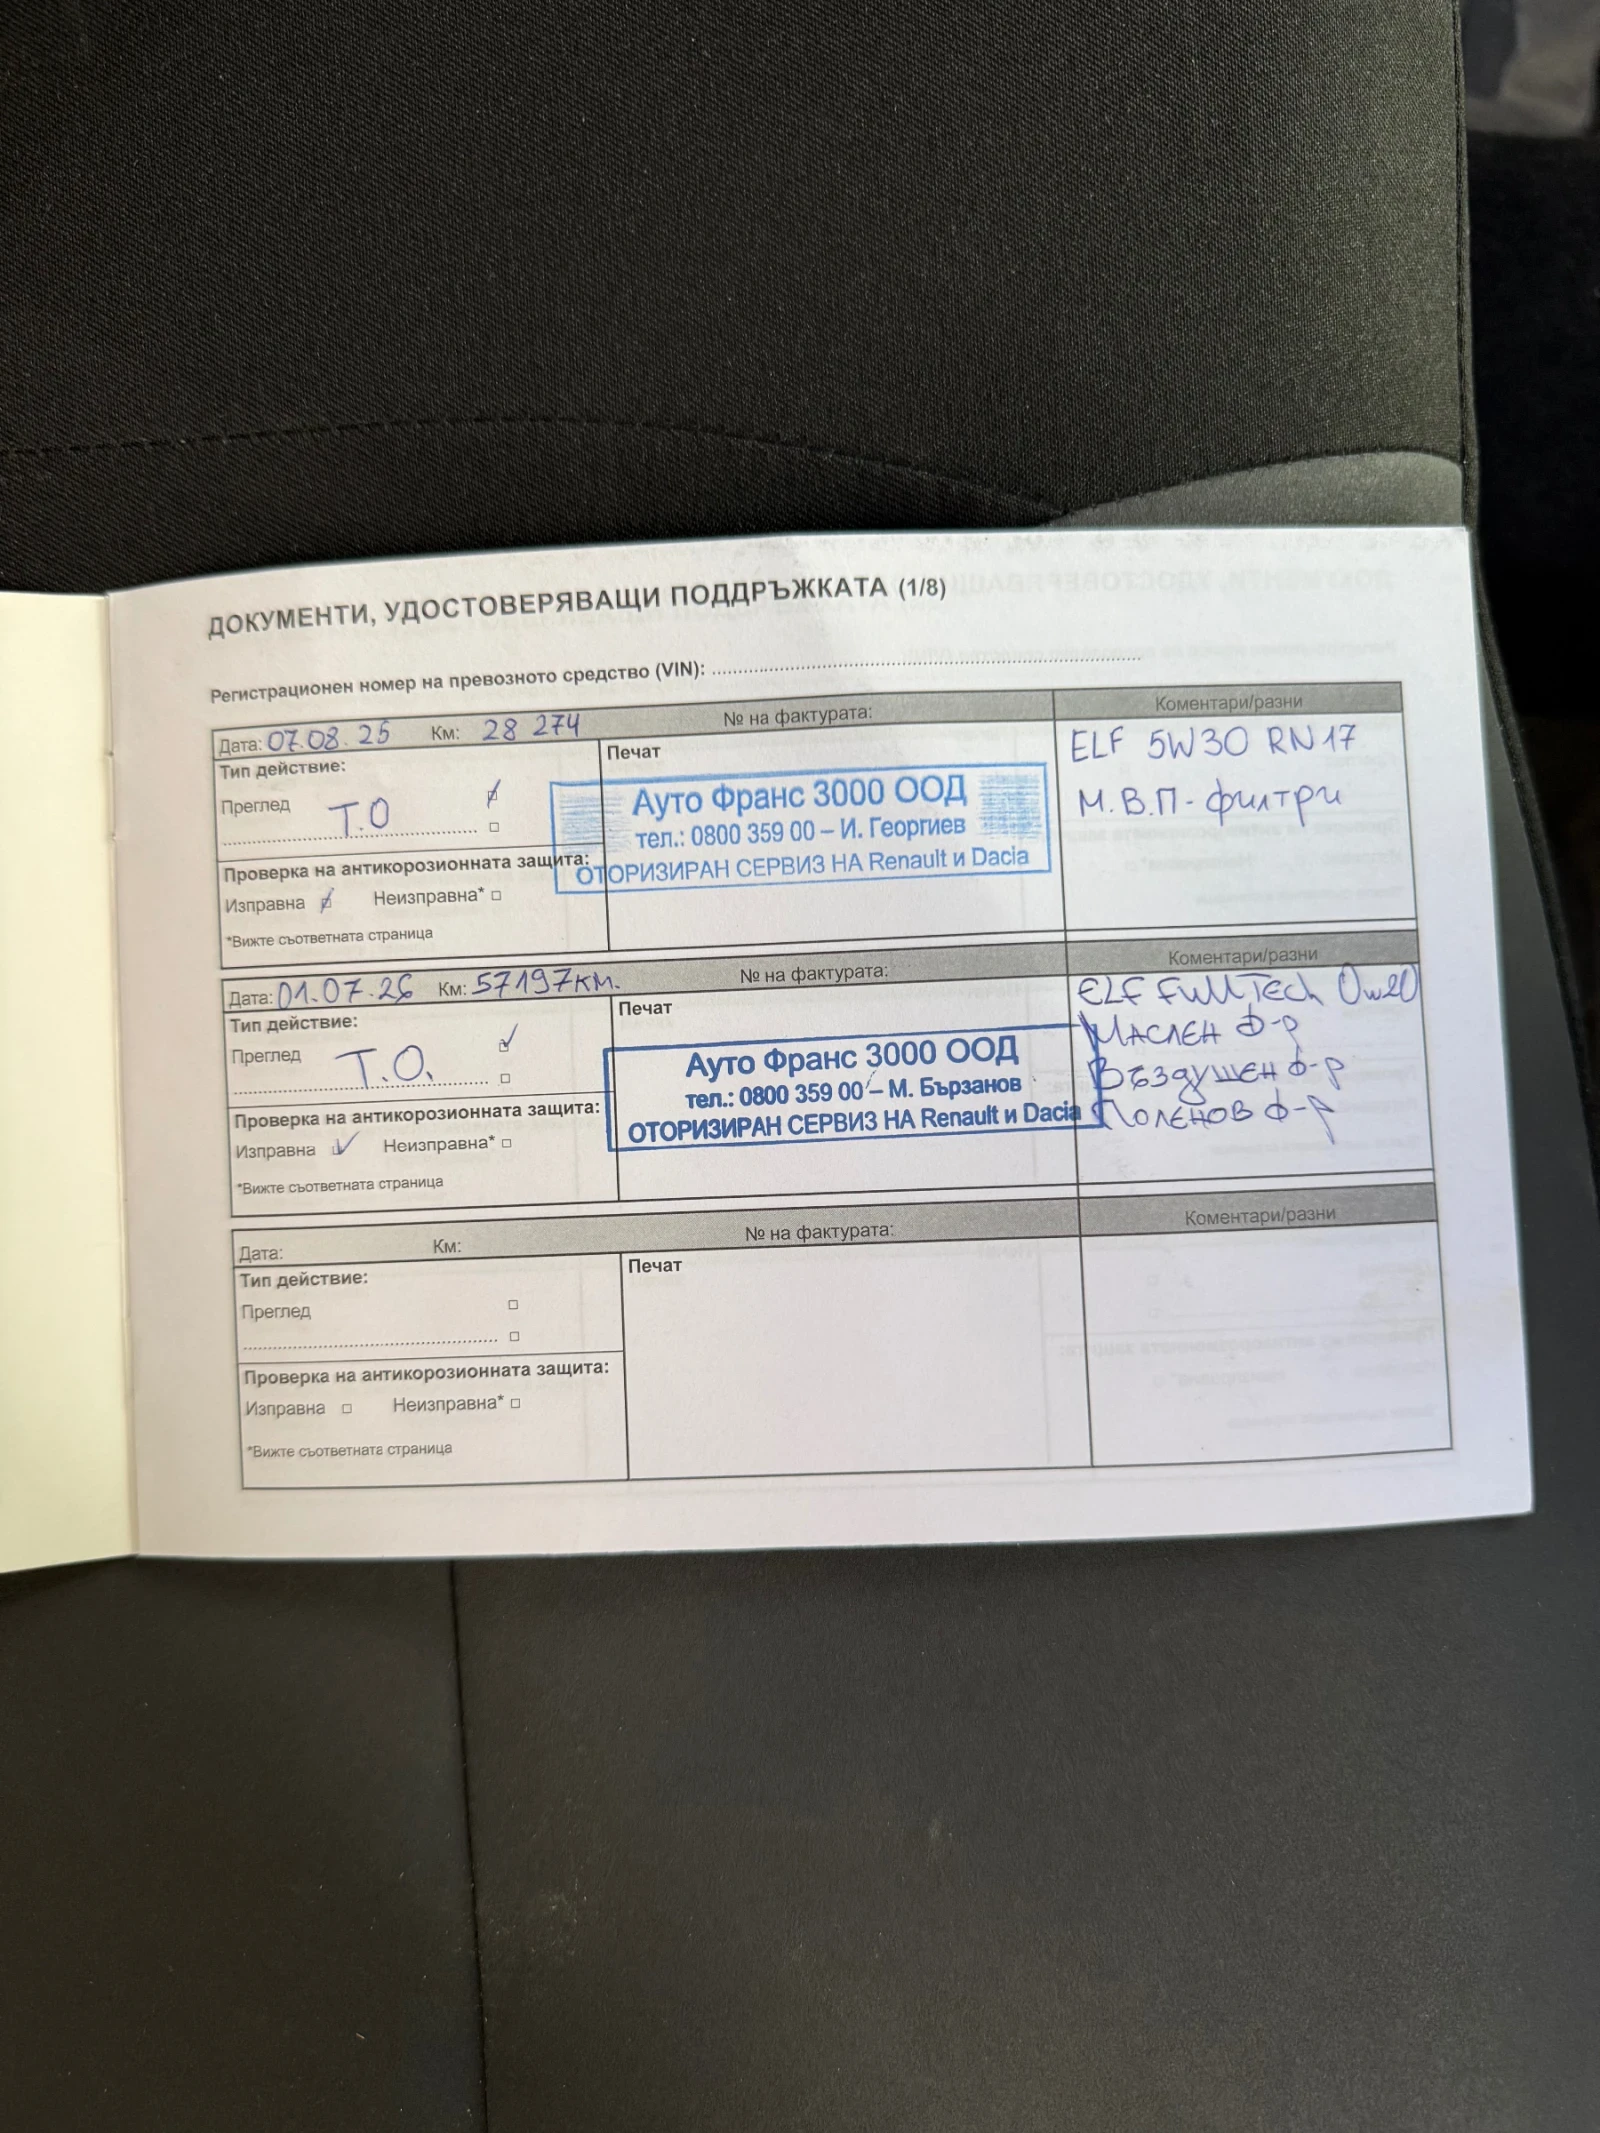 ДОКУМЕНТИ, УДОСТОВЕРЯВАЩИ ПОДДРЪЖКАТА (1/8)
Регистрационен номер на превозното средство (VIN):
Дата: 07.08.25 Км: 28 274 № на фактурата: Коментари/разни
Тип действие:
Преглед Т.О
Проверка на антикорозионната защита:
Изправна Неизправна*
*Вижте съответната страница
Печат
Ауто Франс 3000 ООД
тел.: 0800 359 00 – И. Георгиев
ОТОРИЗИРАН СЕРВИЗ НА Renault и Dacia
ELF 5W30 RN17
М.В.П - филтри
Дата: 01.07.26 Км: 57197км. № на фактурата: Коментари/разни
Тип действие:
Преглед Т.О.
Проверка на антикорозионната защита:
Изправна Неизправна*
*Вижте съответната страница
Печат
Ауто Франс 3000 ООД
тел.: 0800 359 00 – М. Бързанов
ОТОРИЗИРАН СЕРВИЗ НА Renault и Dacia
ELF FullTech 0w20
Маслен ф-р
Въздушен ф-р
Поленов ф-р
Дата: Км: № на фактурата: Коментари/разни
Тип действие:
Преглед
Проверка на антикорозионната защита:
Изправна Неизправна*
*Вижте съответната страница
Печат